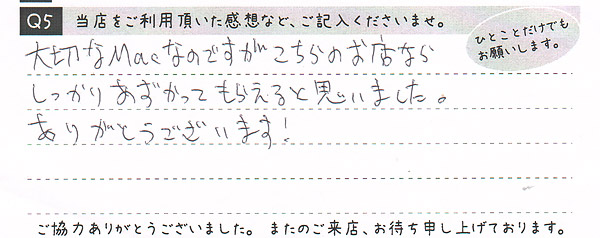 Q5 当店をご利用頂いた感想など、ご記入くださいませ。
ひとことだけでも
お願いします。
大切なMacなのですがこちらのお店なら
しっかりあずかってもらえると思いました。
ありがとうございます!
ご協力ありがとうございました。 またのご来店、お待ち申し上げております。